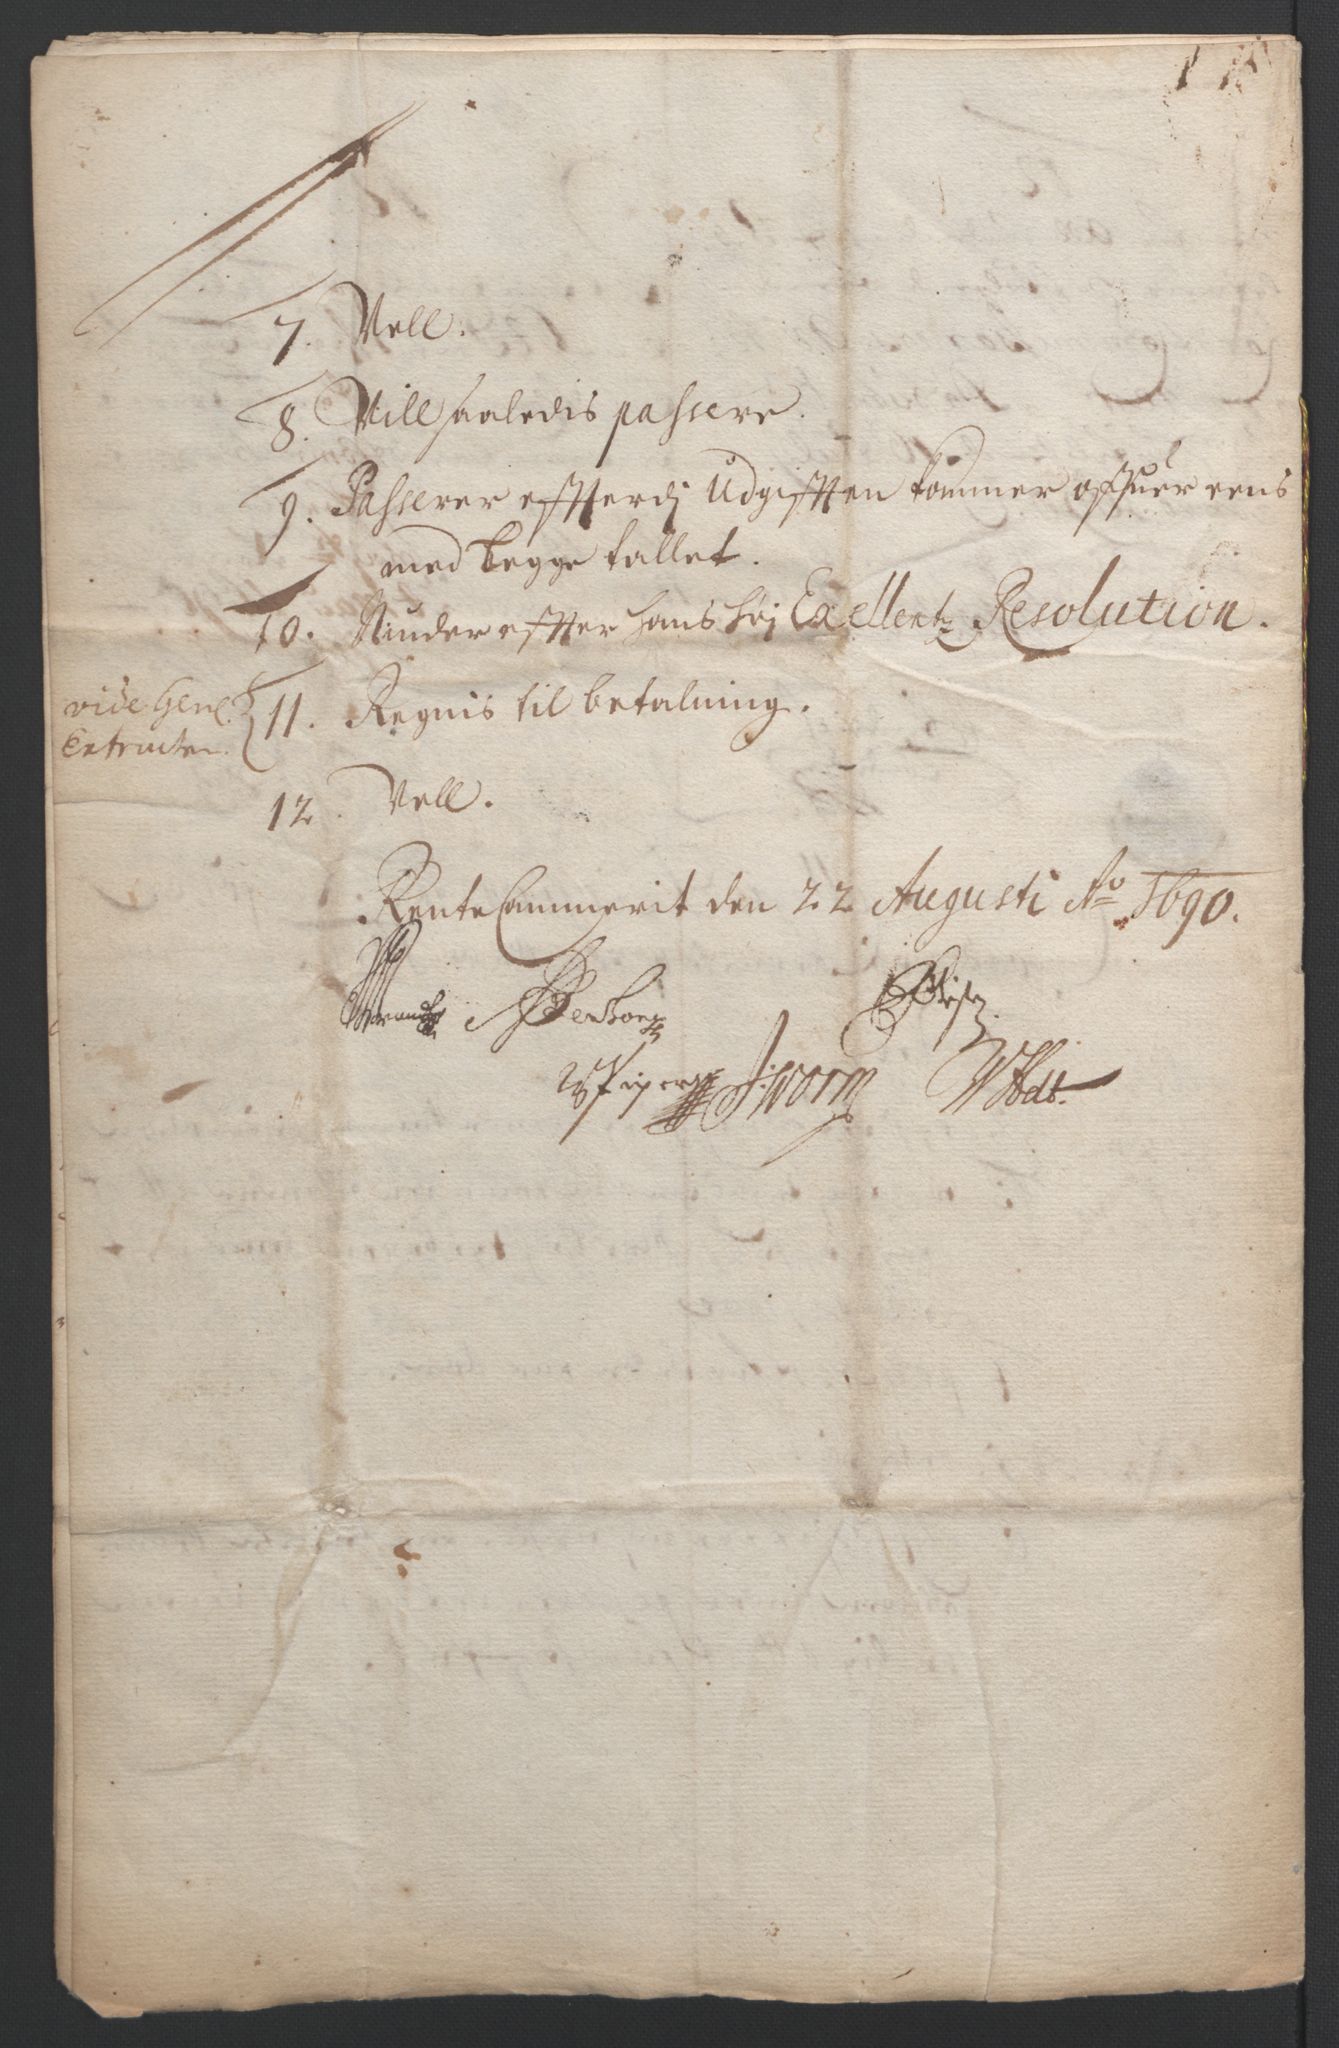 7. Vell.
8. Vill saaledis passere.
9. Passerer effterdj Udgifften kommer offuer eens
med begge tallet.
10. effter hans høj Exellentz Resolution.
vide Genl:
Extracten.
11. Regnis til betalning.
12. Vell.
RenteCammerit den 22 Augusti Ao 1690.
PBrandt
Worm